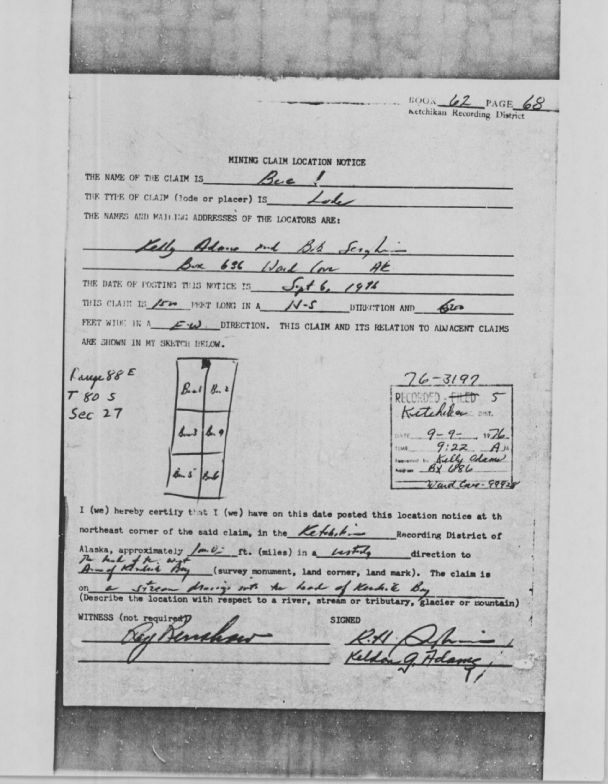 BOOK 62 PAGE 68
Ketchikan Recording District
MINING CLAIM LOCATION NOTICE
THE NAME OF THE CLAIM IS Bee 1
THE TYPE OF CLAIM (lode or placer) IS Lode
THE NAMES AND MAILING ADDRESSES OF THE LOCATORS ARE:
Kelly Adams and Bob
Box 686 Ward Cove AK
THE DATE OF POSTING THIS NOTICE IS Sept 6, 1976
THIS CLAIM IS 1500 FEET LONG IN A N-S DIRECTION AND 600
FEET WIDE IN A E-W DIRECTION. THIS CLAIM AND ITS RELATION TO ADJACENT CLAIMS
ARE SHOWN IN MY SKETCH BELOW.
Range 88 E
T 80 S
Sec 27
Bee 1 Bee 2
Bee 3 Bee 4
Bee 5 Bee 6
76-3197
RECORDED - FILED 5
Ketchikan DIST.
DATE 9-9- 1976
TIME 9:22 A M
Requested by Kelly Adams
Address BX 686
Ward Cove - 99928
I (we) hereby certify that I (we) have on this date posted this location notice at th
northeast corner of the said claim, in the Ketchikan Recording District of
Alaska, approximately ft. (miles) in a westerly direction to
The head of the
Arm of Bay (survey monument, land corner, land mark). The claim is
on a stream into the head of Bay
(Describe the location with respect to a river, stream or tributary, glacier or mountain)
WITNESS (not required) SIGNED
Ray Renshaw R.H.
Keldon G. Adams